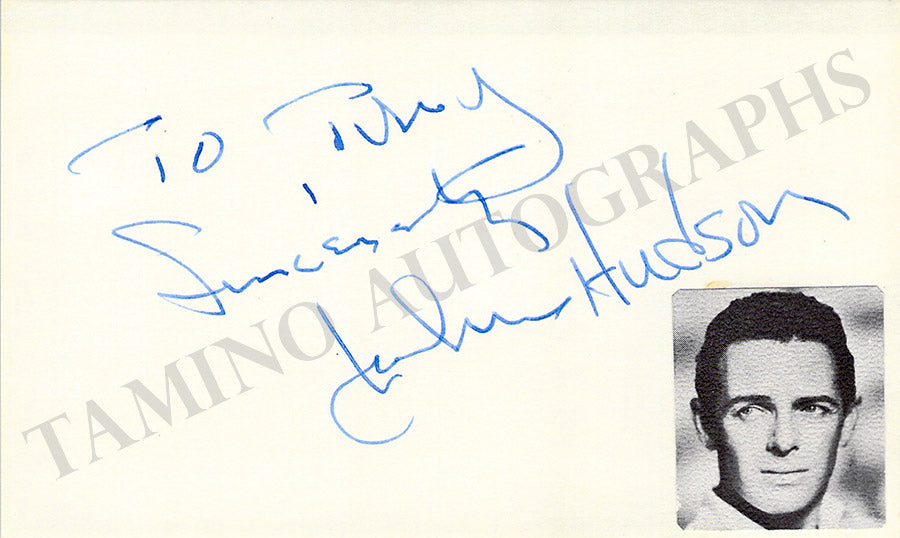 To Tony,
Sincerely
John Hudson
TAMINO AUTOGRAPHS